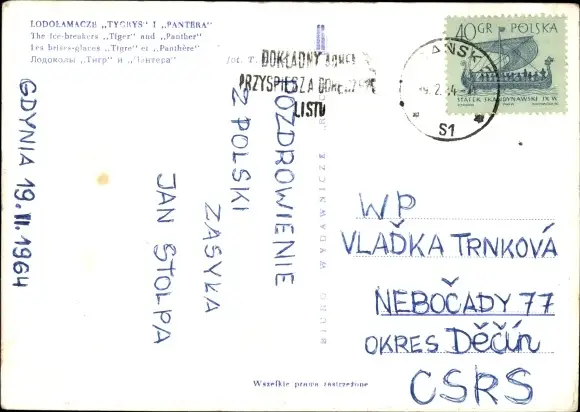 LODOŁAMACZE „TYGRYS" I „PANTERA"
The ice-breakers „Tiger" and „Panther"
Les brises-glaces „Tigre" et „Panthère"
Ледоколы „Тигр" и „Пантера"
fot. T.
DOKŁADNY ADRES
PRZYSPIESZA DORĘCZENIE
LISTU
GDAŃSK
2.64
S1
40GR POLSKA
STATEK SKANDYNAWSKI IX W.
POZDROWIENIE
Z POLSKI
ZASYŁA
JAN STOLPA
GDYNIA 19.II.1964
BIURO WYDAWNICZE
WP
VLAĎKA TRNKOVÁ
NEBOČADY 77
OKRES Děčín
ČSRS
Wszelkie prawa zastrzeżone